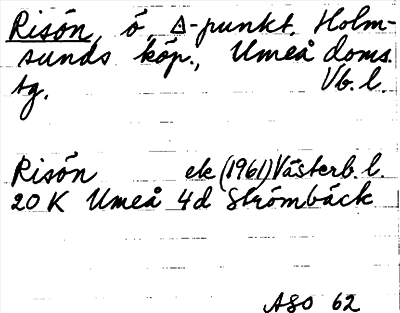 Risön, ö, △-punkt. Holm-
sunds köp., Umeå doms.
tg. Vb. l.
Risön ek (1961) Västerb. l.
20 K Umeå 4d Strömbäck
ASO 62